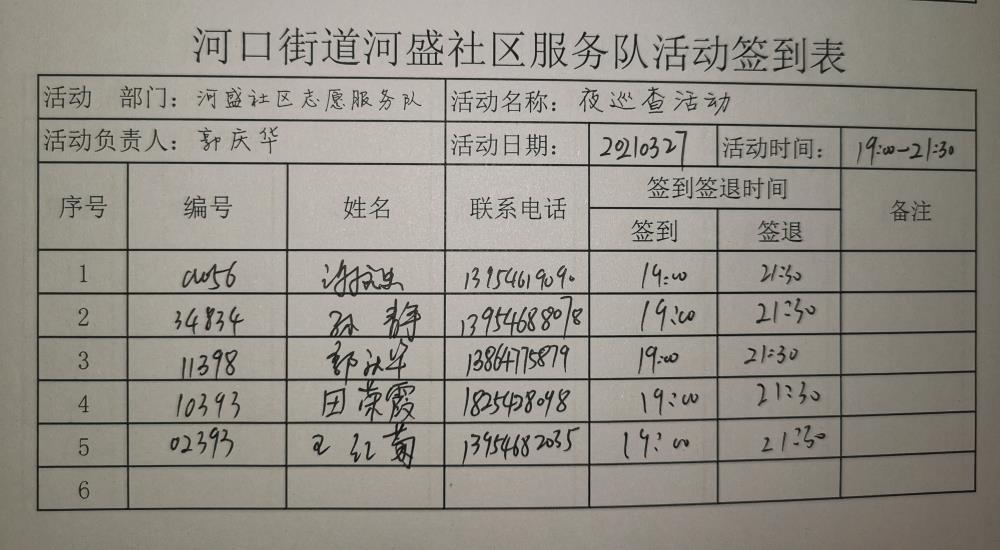 河口街道河盛社区服务队活动签到表
活动 部门：河盛社区志愿服务队 活动名称：夜巡查活动
活动负责人：郭庆华 活动日期： 20210327 活动时间： 19:00-21:30
序号 编号 姓名 联系电话 签到签退时间 备注
签到 签退
1 13954619090 19:00 21:30
2 34834 孙静 13954688078 19:00 21:30
3 11398 郭庆华 13864775879 19:00 21:30
4 10393 田荣霞 18254728098 19:00 21:30
5 02393 王红菊 13954682035 19:00 21:30
6